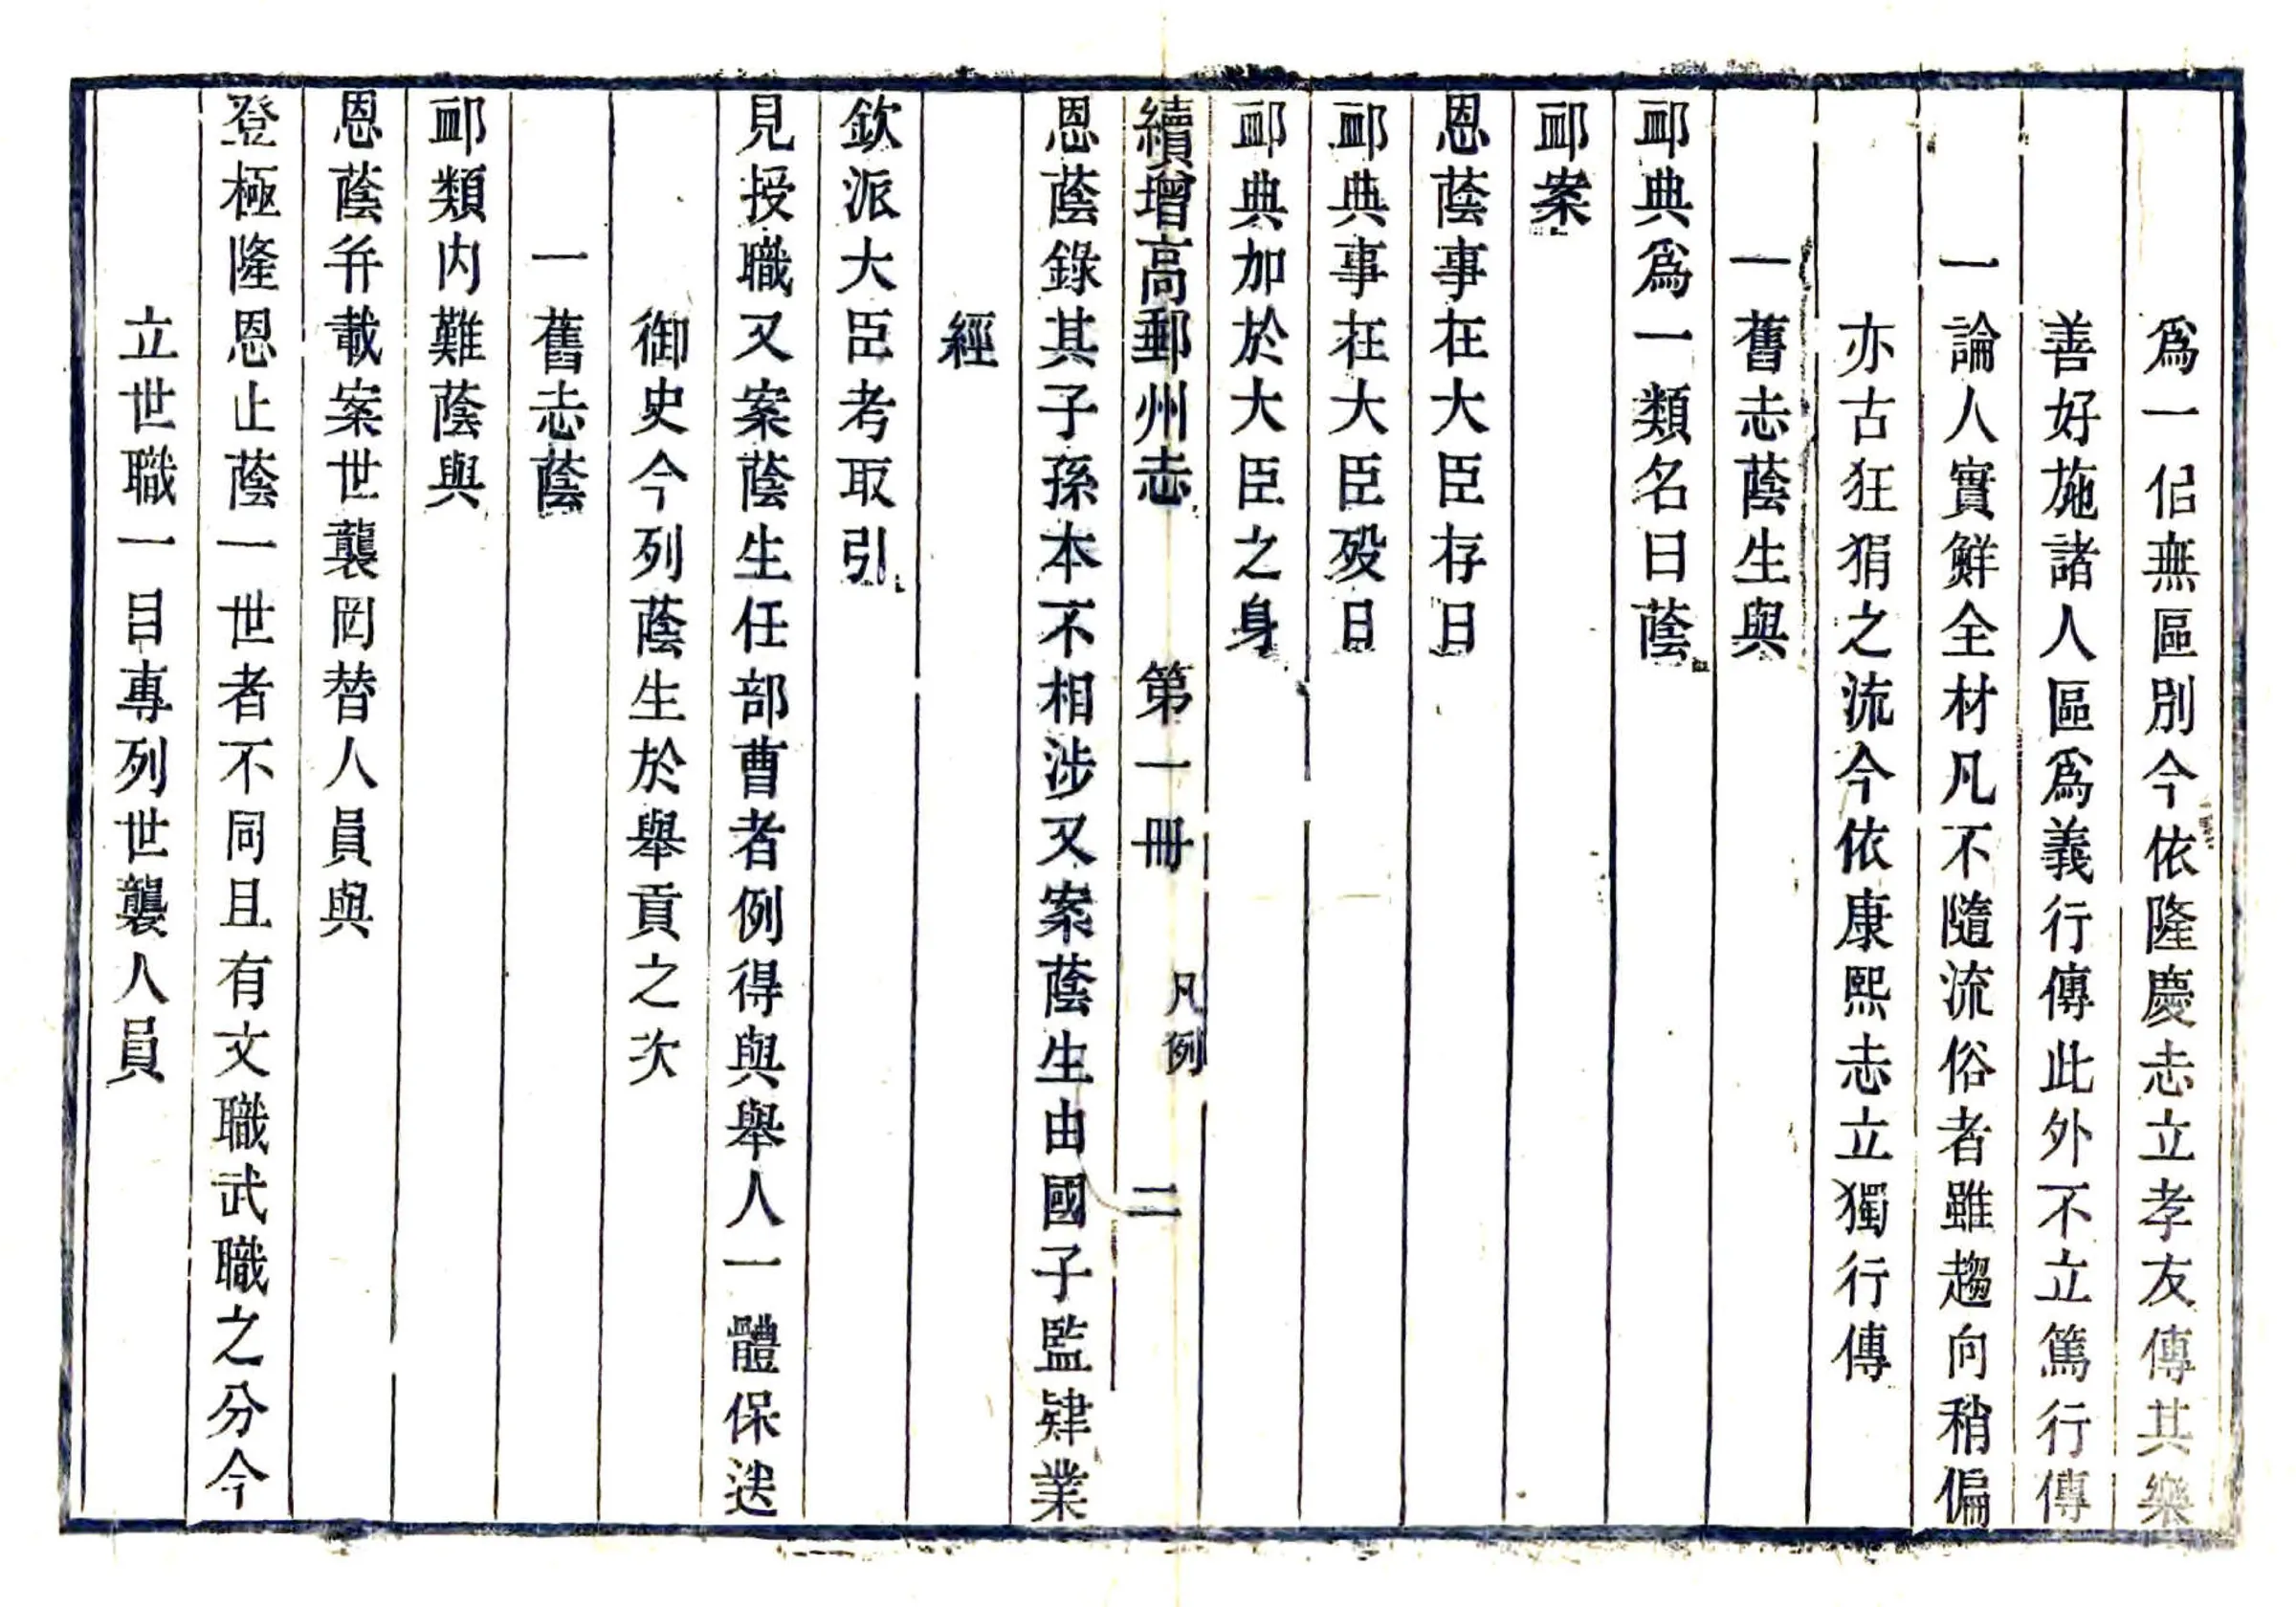 爲一但無區別今依隆慶志立孝友傳其樂
善好施諸人區爲義行傳此外不立篤行傳
一論人實鮮全材凡不隨流俗者雖趨向稍偏
亦古狂狷之流今依康熙志立獨行傳
一舊志蔭生與
䘏典爲一類名曰蔭
䘏案
恩蔭事在大臣存日
䘏典事在大臣歿日
䘏典加於大臣之身
續增高郵州志 第一冊 凡例 二
恩蔭錄其子孫本不相涉又案蔭生由國子監肄業
經
欽派大臣考取引
見授職又案蔭生任部曹者例得與舉人一體保送
御史今列蔭生於舉貢之次
一舊志蔭
䘏類内難蔭與
恩蔭并載案世襲罔替人員與
登極隆恩止蔭一世者不同且有文職武職之分今
立世職一目專列世襲人員